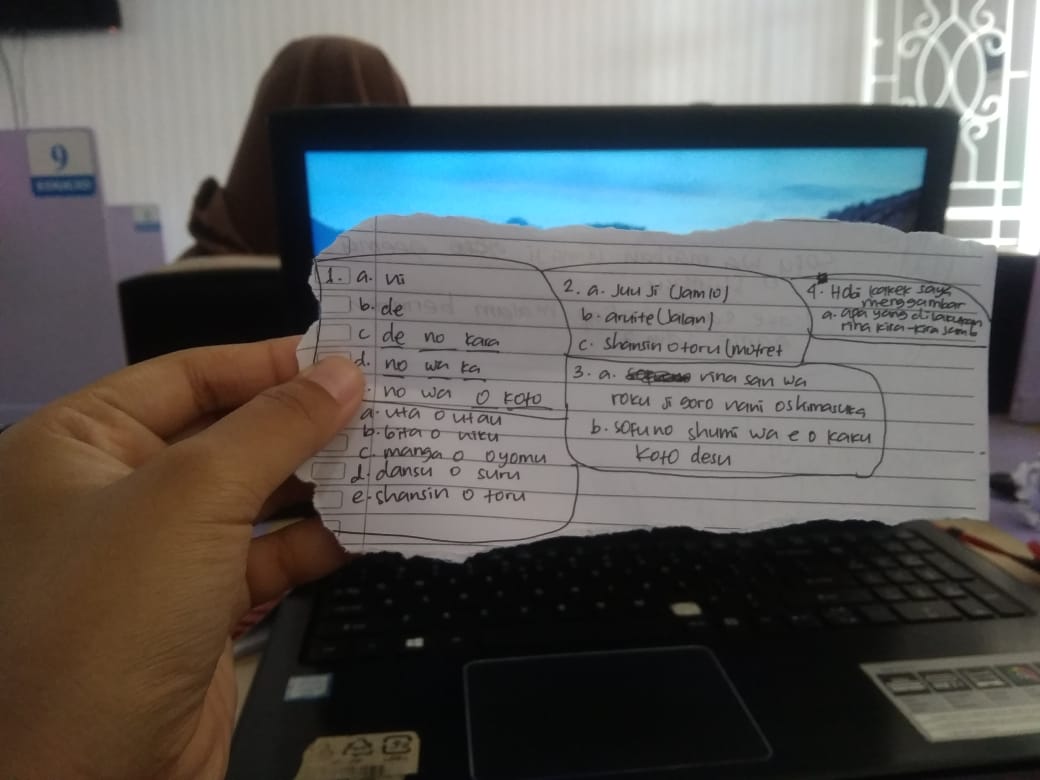 9
1. a. ni
b. de
c de no kara
d. no wa ka
. no wa o koto
a. uta o utau
b. bita o
c. manga o oyomu
d. dansu o suru
e. shansin o toru
2. a. juu ji (Jam 10)
b. aruite (Jalan)
c. shansin o toru (motret
3. a. rina san wa
roku ji goro nani o shimasuka
b. sofu no shumi wa e o kaku
koto desu
4. Hobi kakek saya
menggambar
a. apa yang dilakukan
rina kira-kira jam 6